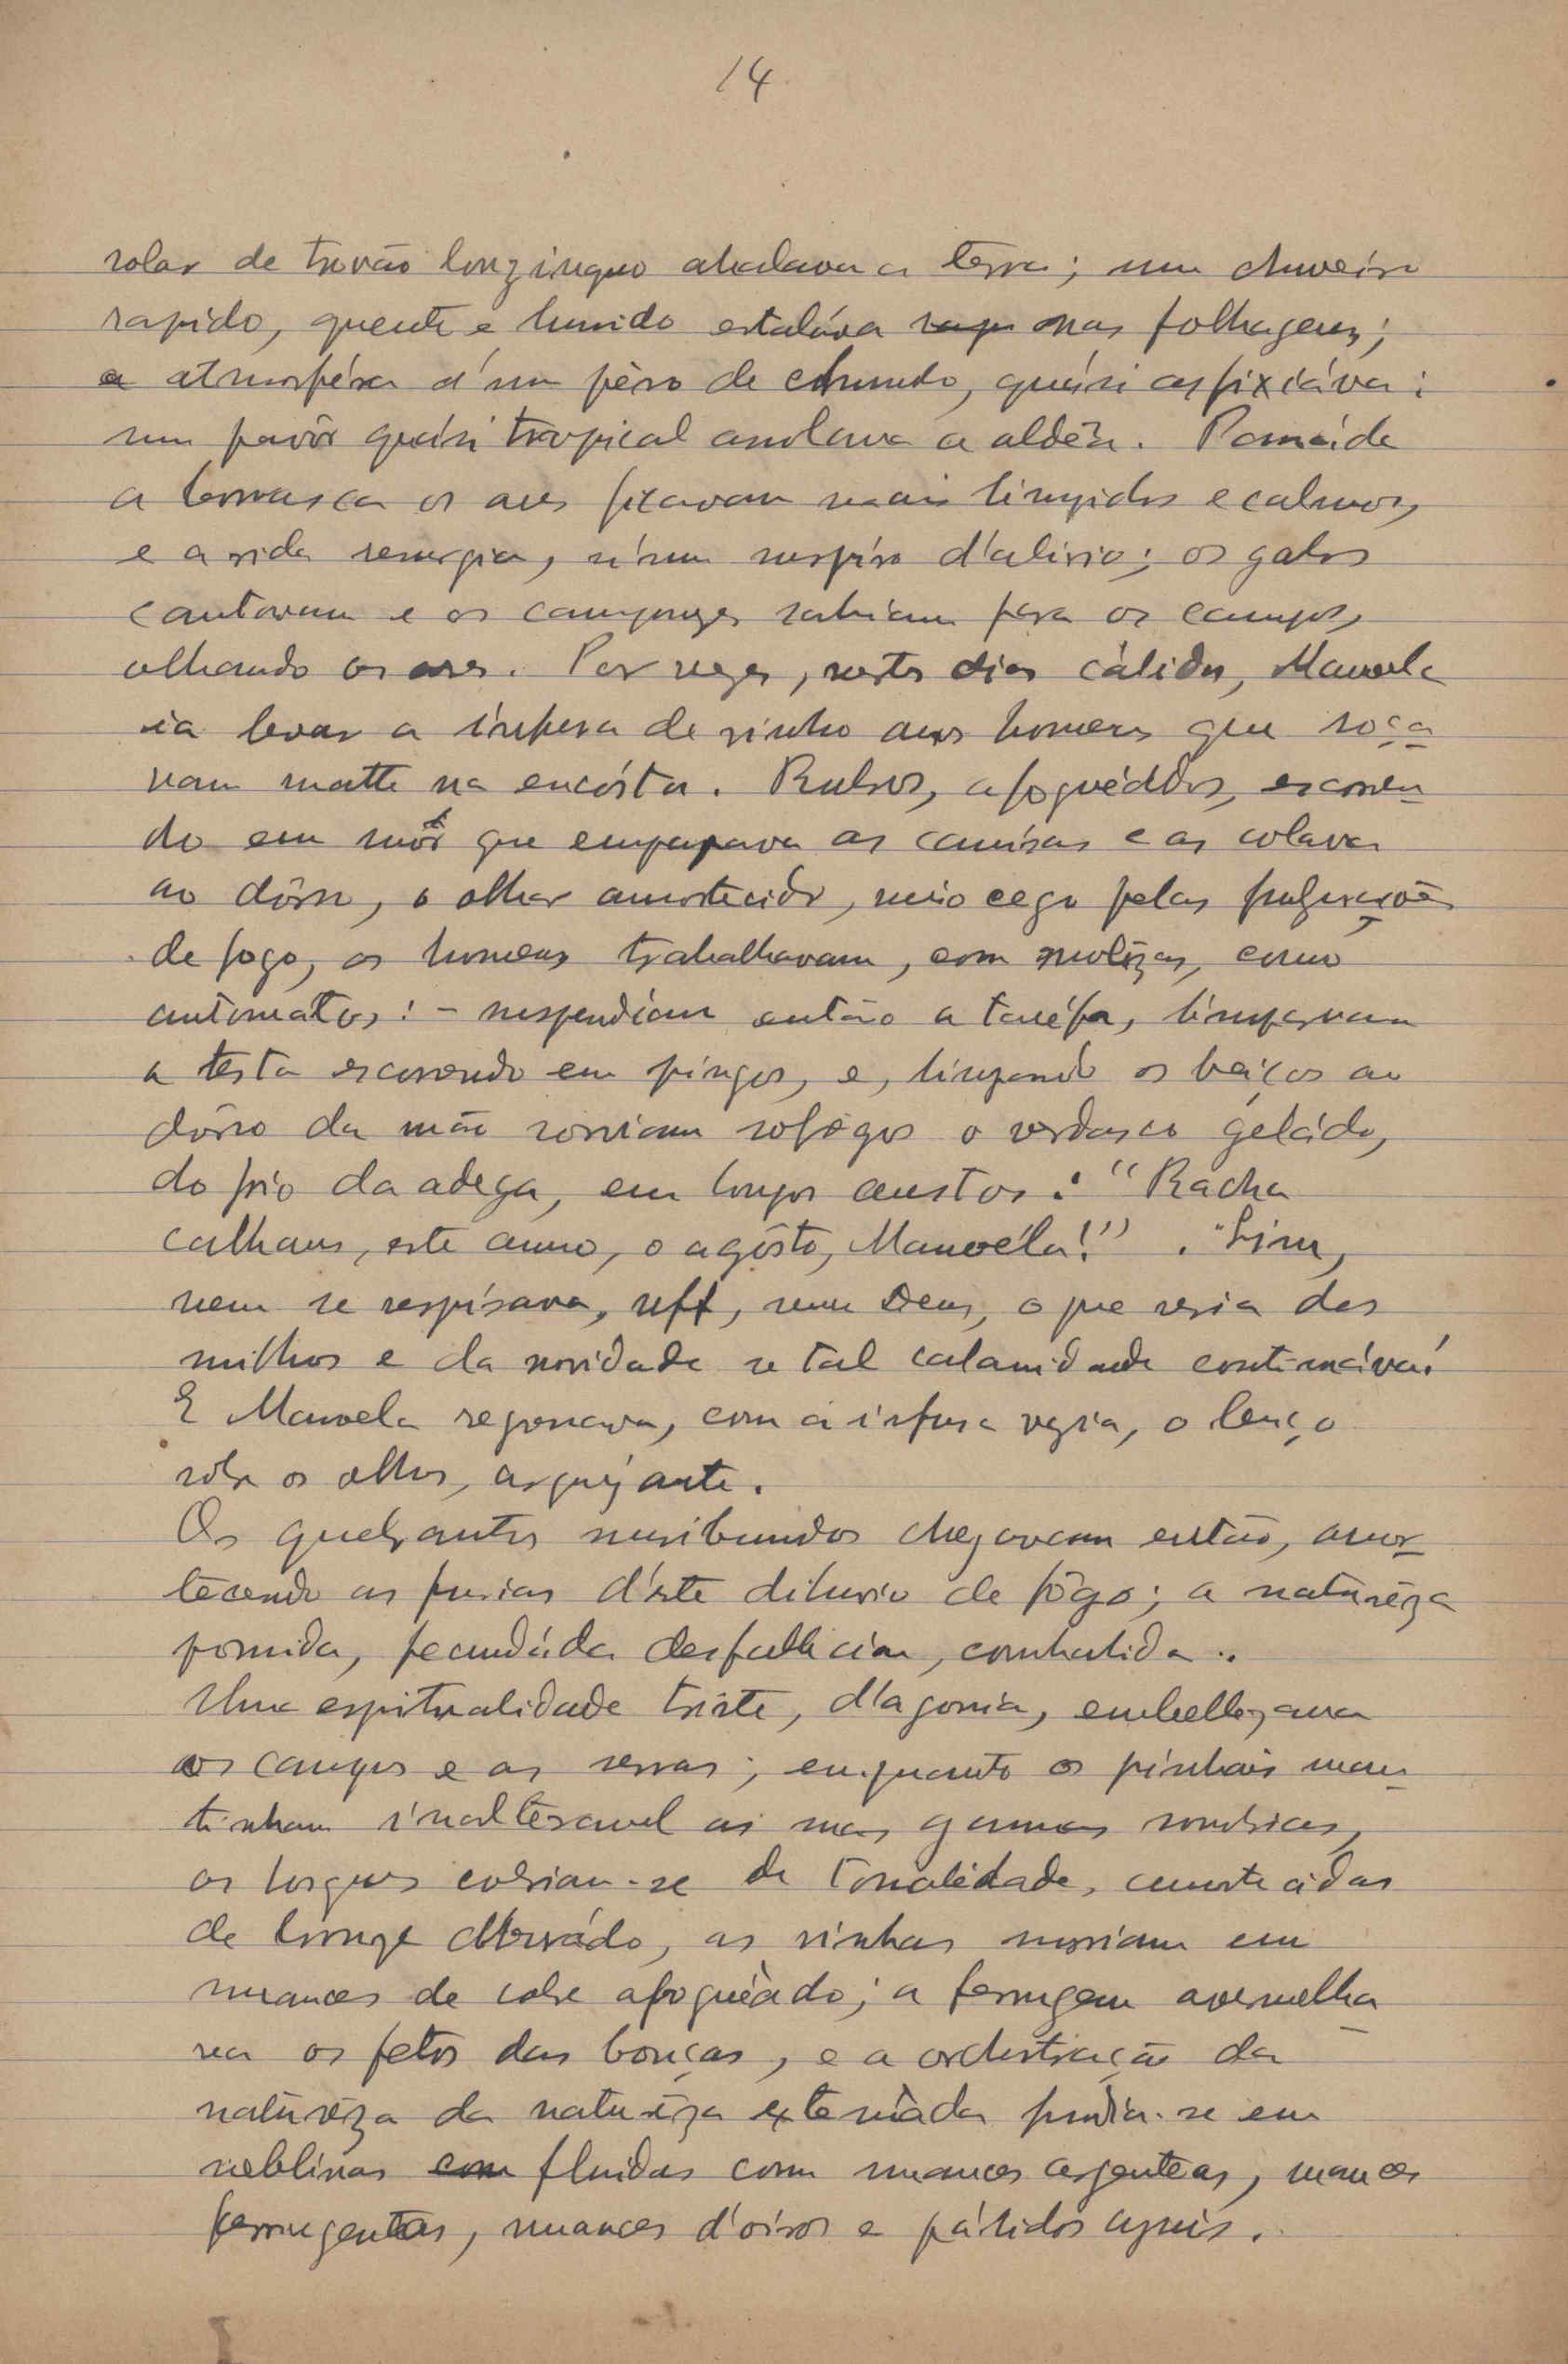 14
rolar de trovão longinquo abalava a terra; um chuveiro
rapido, quente e humido estaláva nas folhagens;
a atmosféra d'um pêso de chumbo, quási asfixiáva:
um pavôr quási tropical assolava a aldêa. Passáda
a borrasca os ares ficavam mais limpidos e calmos,
e a vida resurgia, n'um suspiro d'alivio; os galos
cantavam e os camponezes sahiam para os campos,
olhando os ares. Por vezes, n'estes dias cálidos, Manoela
ia levar a infusa de vinho aos homens que roça
vam matto na encósta. Rubros, afoguéados, escorren-
do em suôr que empapava as camisas e as colava
ao dôrso, o olhar amortecido, meio cego pelas fulgurações
de fogo, os homens trabalhavam, com molêzas, como
automatos: - suspendiam então a taréfa, limpavam
a testa escorrendo em pingos, e, limpando os beiços ao
dôrso da mão sorviam sofregos o verdasco geládo,
do frio da adega, em longos haustos: "Racha
calhaus, este anno, o agôsto, Manoéla!" . "Sim,
nem se respirava, uff, meu Deus, o que seria dos
milhos e da novidade se tal calamidade continuáva!
E Manoela regressava, com a infusa vazia, o lenço
sobre os olhos, arquejante.
Os quebrantos moribundos chegavam então, amor-
tecendo as furias d'este diluvio de fôgo; a naturêza
fecundáda desfallecia, combalida..
Uma espiritualidade triste, d'agonia, embellezava
os campos e as serras; emquanto os pinhais man-
tinham inalteravel as suas gammas sombrias,
os bosques cobriam-se de tonalidades amortecidas
de bronze as vinhas morriam em
nuances de cobre afoguêado; a ferrugem avermelha
va os fetos das bouças, e a orchestração da
naturêza da naturêza extenuàda fundia-se em
neblinas com fluidas com nuances argenteas, nuances
ferrugentas, nuances d'oiros e pálidos azues.